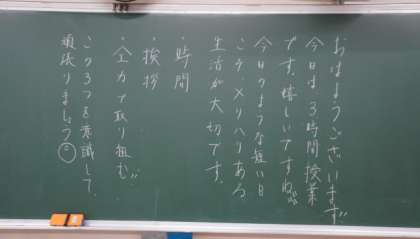 おはようございます。
今日は、3時間授業
です。嬉しいですね。
今日のような短い日
こそ、メリハリある
生活が大切です。
・時間
・挨拶
・全力で取り組む。
この3つを意識して、
頑張りましょう。